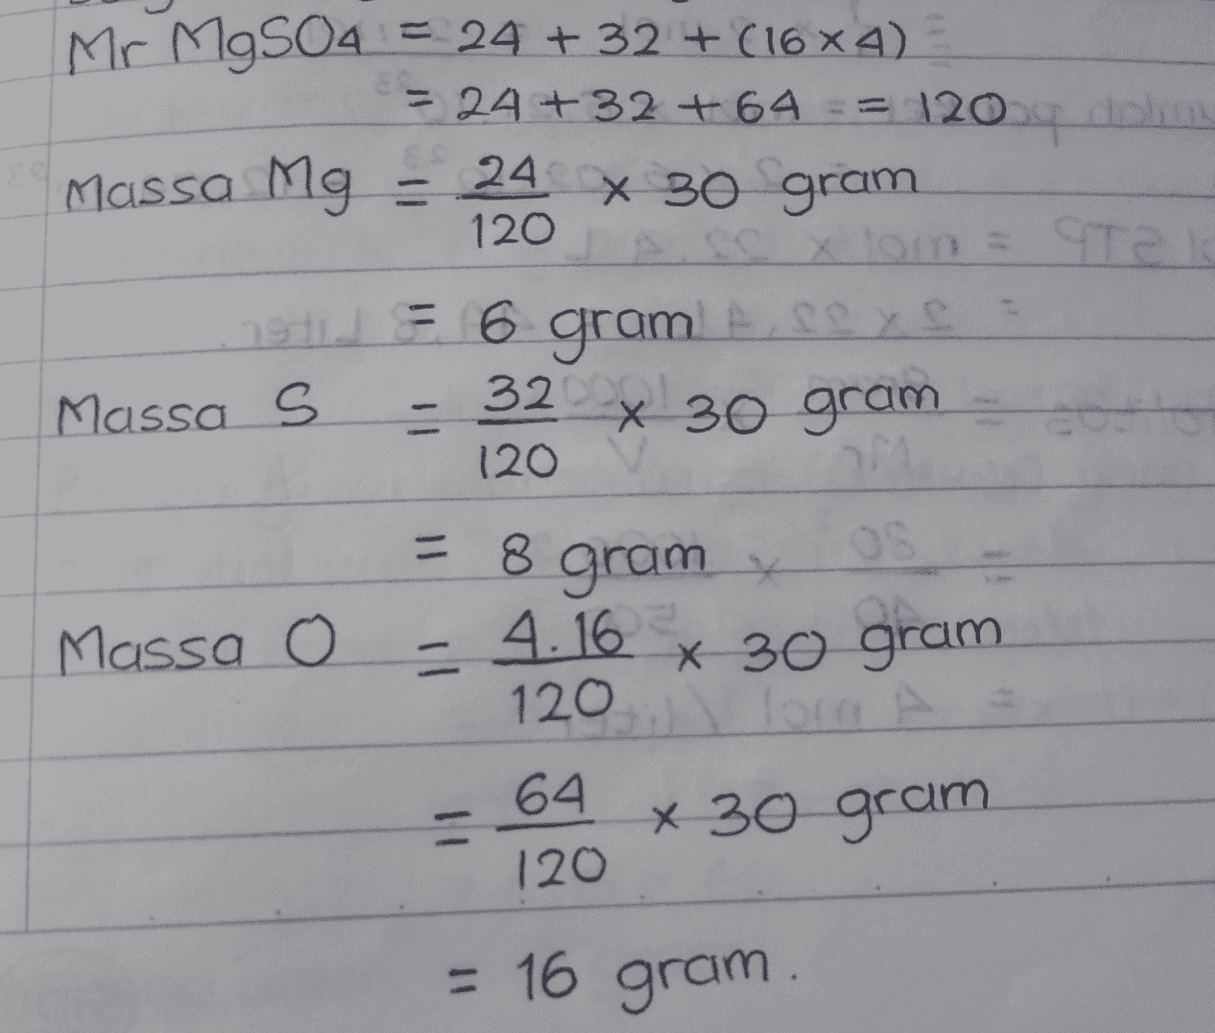 Mr MgSO4 = 24 + 32 + (16 x 4)
= 24 + 32 + 64 = = 120
Massa Mg = 24/120 x 30 gram
= 6 gram
Massa S = 32/120 x 30 gram
= 8 gram
Massa O = 4.16/120 x 30 gram
= 64/120 x 30 gram
= 16 gram.